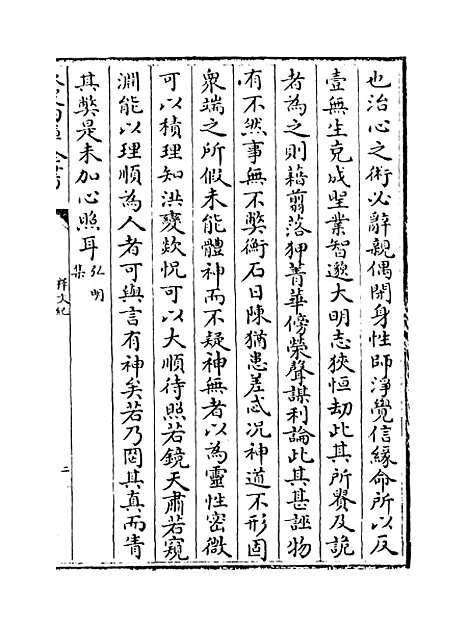 也治心之術必辭親偶閉身性師淨覺信緣命所以反
壹無生克成聖業智邈大明志狹恒劫此其所貴及詭
者為之則藉翦落狎菁華傍榮聲謀利論此其甚誣物
有不然事無不弊衡石日陳猶患差忒況神道不形固
衆端之所假未能體神而不疑神無者以為靈性密微
可以積理知洪變欻怳可以大順待照若鏡天肅若窺
淵能以理順為人者可與言有神矣若乃罔其真而眚
其弊是未加心照耳弘明集
釋文紀
二